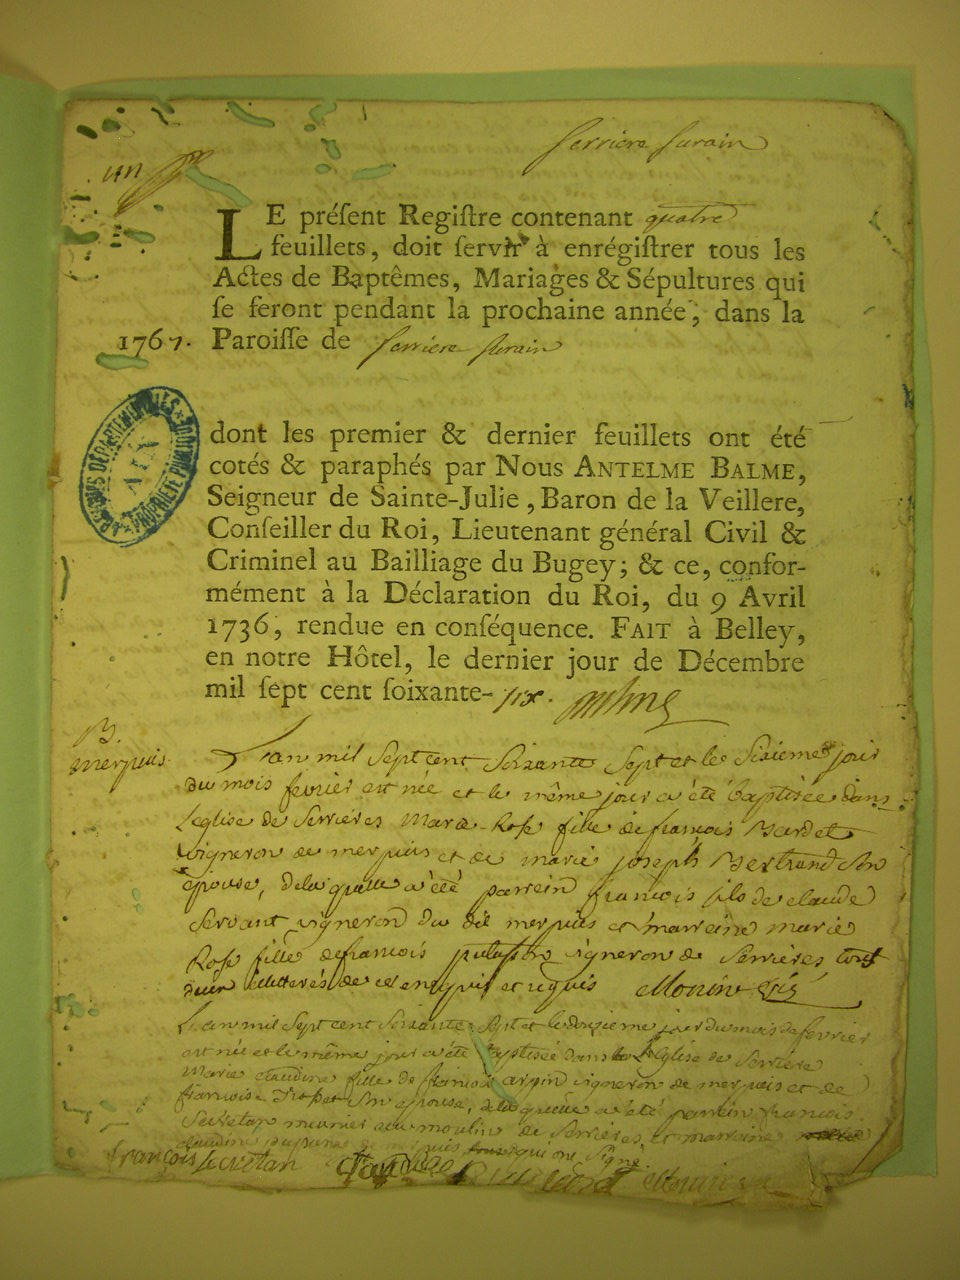 serriere surain
un
LE préſent Regiſtre contenant quatre
feuillets, doit ſervir à enrégiſtrer tous les
Actes de Baptêmes, Mariages & Sépultures qui
ſe feront pendant la prochaine année, dans la
1767. Paroiſſe de serriere surain
ARCHIVES DÉPARTEMENTALES
AIN
PROPRIÉTÉ PUBLIQUE
dont les premier & dernier feuillets ont été
cotés & paraphés par Nous ANTELME BALME,
Seigneur de Sainte-Julie, Baron de la Veillere,
Conſeiller du Roi, Lieutenant général Civil &
Criminel au Bailliage du Bugey; & ce, confor-
mément à la Déclaration du Roi, du 9 Avril
1736, rendue en conſéquence. FAIT à Belley,
en notre Hôtel, le dernier jour de Décembre
mil ſept cent ſoixante-six.
B.
merpuis
L'an mil sept cent soixante sept et le sixieme jour
du mois fevrier est née et le même jour a été baptisée dans
Leglise de serrieres marie Rose fille de francois Bardet
vigneron de merpuis et de marie joseph Bertrand son
epouse, de laquelle a été parrein francois fils de claude
servant vigneron du dit merpuis et marreine marie
Rose fille de francois vigneron de serrieres tous
deux illitterés de ce enquis et requis Monin
L'an mil sept cent soixante sept et le douzieme jour du mois de fevrier
est née et le même jour a été baptisée dans L'Eglise de serriere
marie claudine fille de francois arpin vigneron de merpuis et de
francoise son epouse, de laquelle a été parrein francois
Secretan munier au moulin de serrieres, et marreine
claudine de merpuis qui ont signé
francois secretan Monin